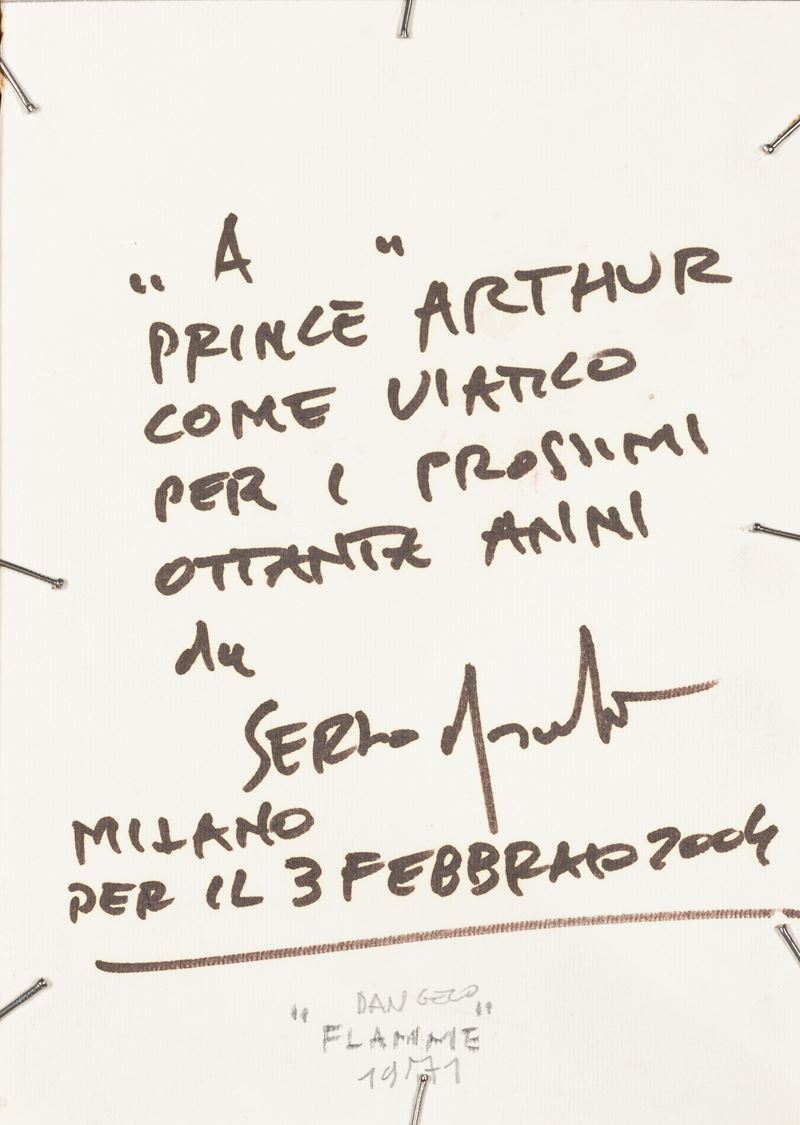 " A
PRINCE" ARTHUR
COME VIATICO
PER I PROSSIMI
OTTANTA ANNI
da
SERGIO
MILANO
PER IL 3 FEBBRAIO 2004
DANGELO
"FLAMME"
1971